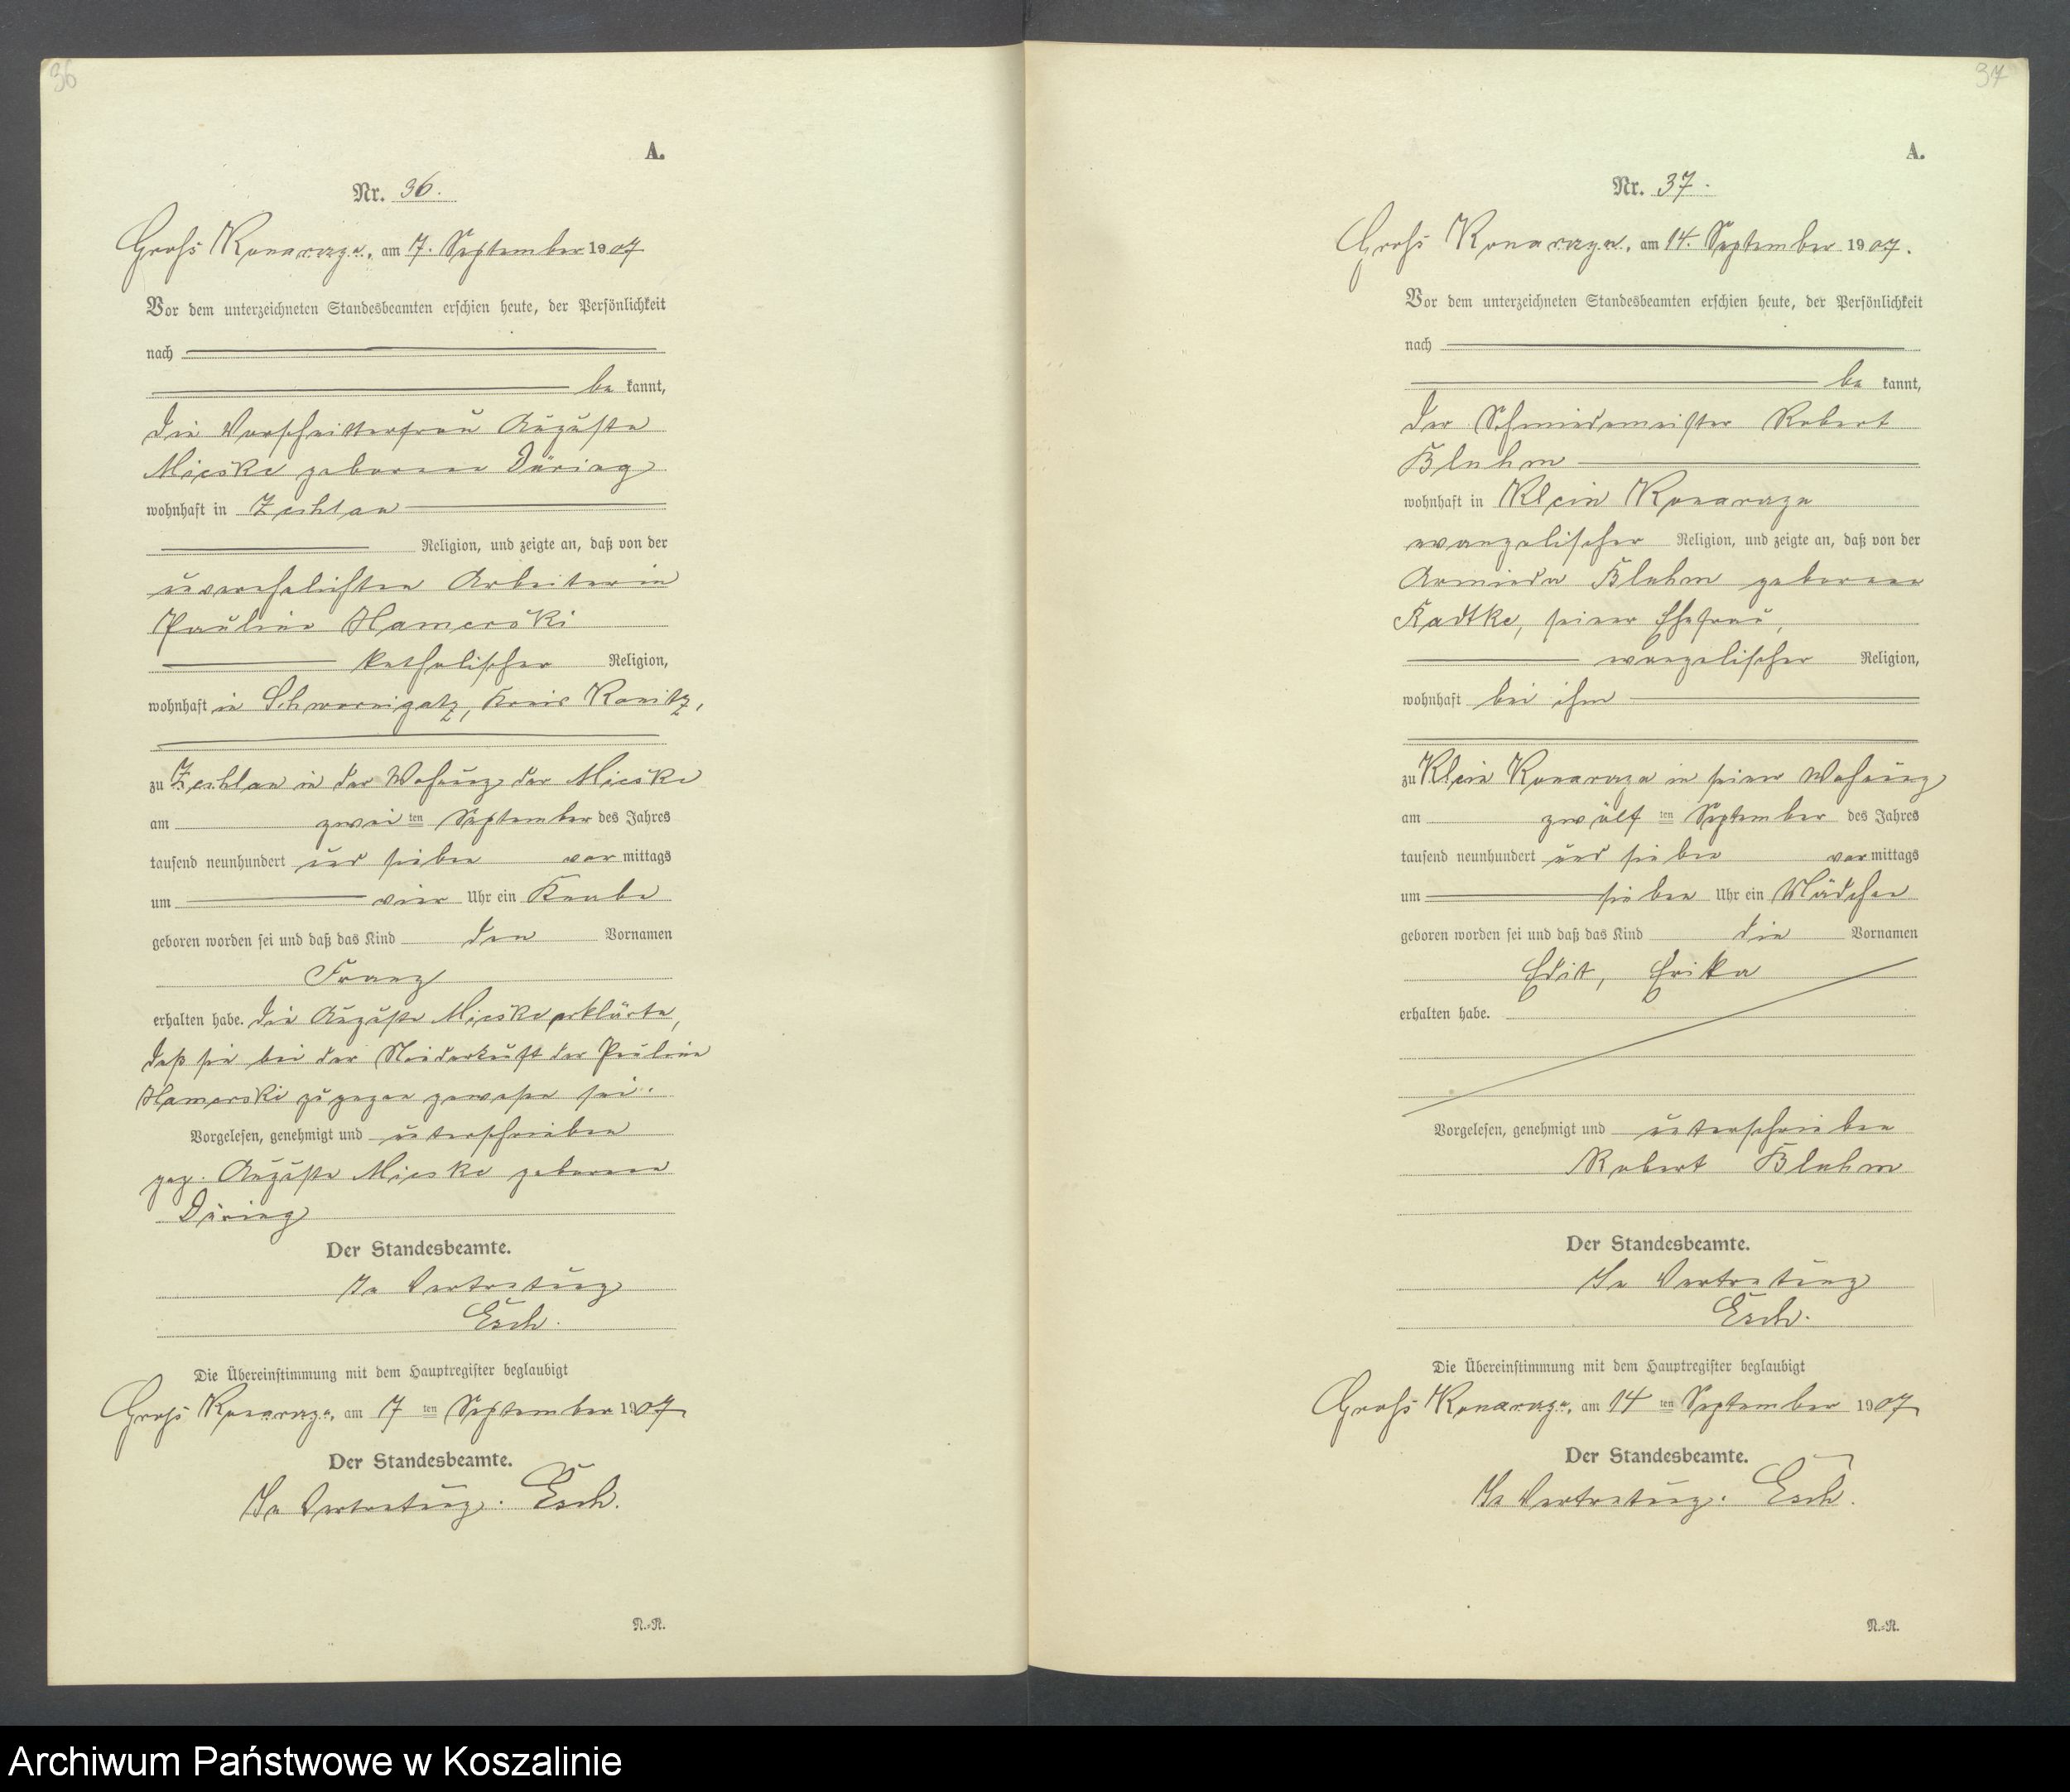 36
A.
Nr. 36.
Groß Konarzyn, am 7. September 1907
Vor dem unterzeichneten Standesbeamten erschien heute, der Persönlichkeit
nach
be kannt,
die Vorschnitterfrau Auguste
Mieske geborene Düring
wohnhaft in Zechlau
Religion, und zeigte an, daß von der
unverehelichten Arbeiterin
Pauline Hamerski
katholischer Religion,
wohnhaft in Schwornigatz, Kreis Konitz,
zu Zechlau in der Wohnung der Mieske
am zwei ten September des Jahres
tausend neunhundert und sieben vor mittags
um vier Uhr ein Knabe
geboren worden sei und daß das Kind den Vornamen
Franz
erhalten habe. Die Auguste Mieske erklärte,
daß sie bei der Niederkunft der Pauline
Hamerski zugegen gewesen sei.
Vorgelesen, genehmigt und unterschrieben
gez. Auguste Mieske geborene
Düring
Der Standesbeamte.
In Vertretung
Esch.
Die Übereinstimmung mit dem Hauptregister beglaubigt
Groß Konarzyn, am 7 ten September 1907
Der Standesbeamte.
In Vertretung. Esch.
N.-R.
37
A.
Nr. 37.
Groß Konarzyn, am 14. September 1907.
Vor dem unterzeichneten Standesbeamten erschien heute, der Persönlichkeit
nach
be kannt,
der Schmiedemeister Robert
Bluhm
wohnhaft in Klein Konarzyn
evangelischer Religion, und zeigte an, daß von der
Bluhm geborene
Radtke, seiner Ehefrau,
evangelischer Religion,
wohnhaft bei ihm
zu Klein Konarzyn in seiner Wohnung
am zwölf ten September des Jahres
tausend neunhundert und sieben vor mittags
um sieben Uhr ein Mädchen
geboren worden sei und daß das Kind die Vornamen
Edit, Erika
erhalten habe.
Vorgelesen, genehmigt und unterschrieben
Robert Bluhm
Der Standesbeamte.
In Vertretung
Esch.
Die Übereinstimmung mit dem Hauptregister beglaubigt
Groß Konarzyn, am 14 ten September 1907
Der Standesbeamte.
In Vertretung. Esch.
N.-R.
Archiwum Państwowe w Koszalinie